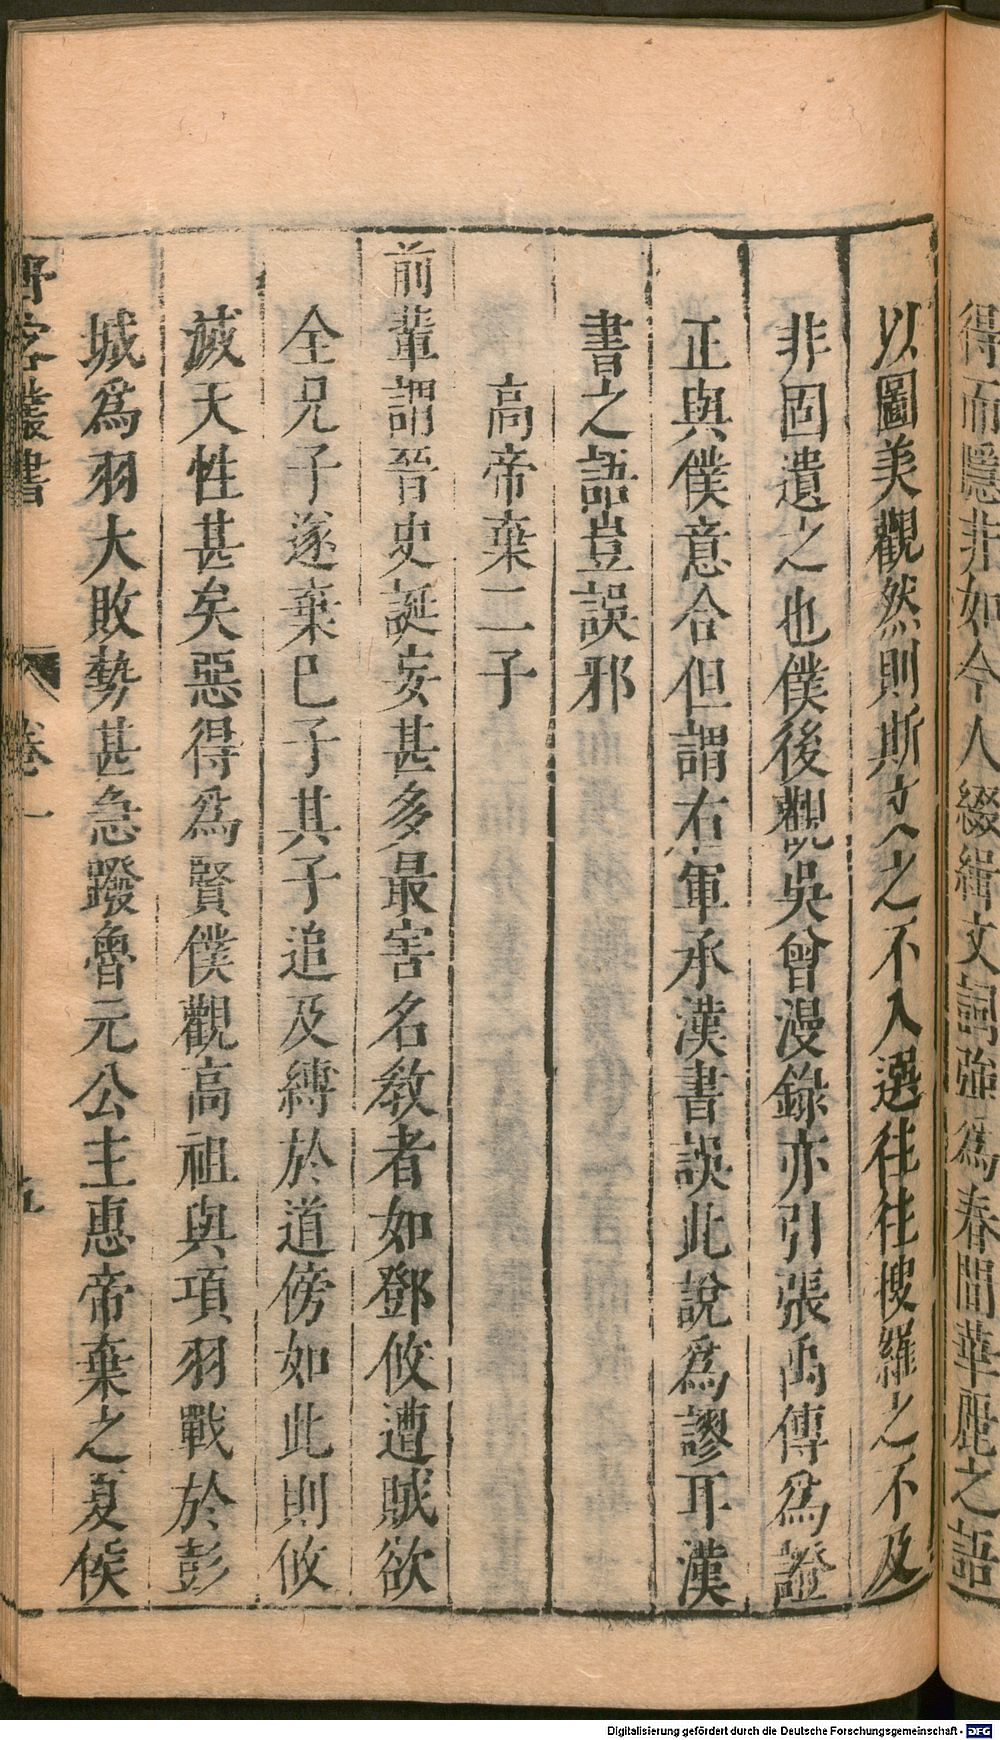 得而隱非如今人綴緝文詞強爲春間華麗之語
以圖美觀然則斯文之不入選往往搜羅之不及
非固遺之也僕後觀吳曾漫錄亦引張禹傳爲證
正與僕意合但謂右軍承漢書誤此說爲謬耳漢
書之語豈誤邪
高帝棄二子
前輩謂晉史誕妄甚多最害名教者如鄧攸遭賊欲
全兄子遂棄巳子其子追及縛於道傍如此則攸
滅天性甚矣惡得爲賢僕觀高祖與項羽戰於彭
城爲羽大敗勢甚急蹳魯元公主惠帝棄之夏侯
野客叢書 卷一 五
Digitalisierung gefördert durch die Deutsche Forschungsgemeinschaft - DFG